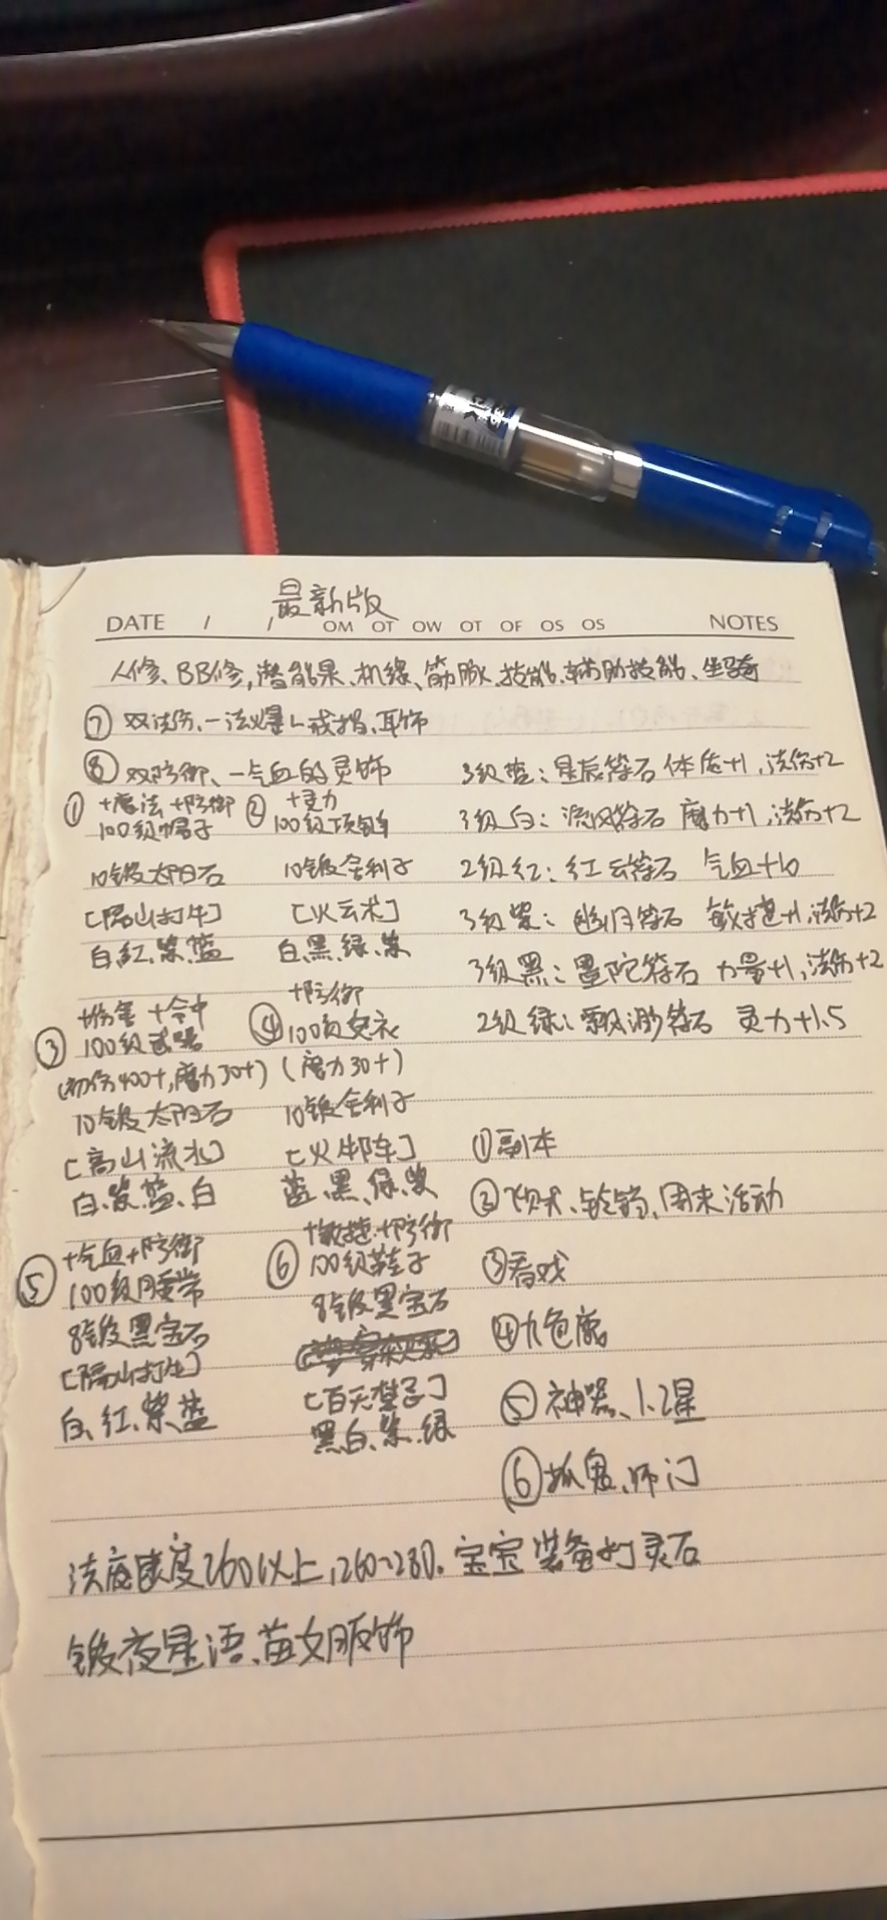 最新版
DATE / / OM OT OW OT OF OS OS NOTES
人修、BB修,潜能果、机缘、筋脉、技能、辅助技能、坐骑
⑦ 双法伤、一法爆 戒指、耳饰
⑧ 双防御、一气血的灵饰
① +魔法 +防御
100级帽子
10锻太阳石
[隔山打牛]
白、红、紫、蓝
② +灵力
100级项链
10锻舍利子
[火云术]
白、黑、绿、紫
3级蓝:星辰符石 体质+1,法伤+2
3级白:流风符石 魔力+1,法伤+2
2级红:红云符石 气血+10
3级紫: 符石 敏捷+1,法伤+2
3级黑:昙陀符石 力量+1,法伤+2
2级绿:飘渺符石 灵力+1.5
③ +伤害 +命中
100级武器
(初伤400+,魔力30+)
10锻太阳石
[高山流水]
白、紫、蓝、白
④ +防御
100级女衣
(魔力30+)
10锻舍利子
[火牛阵]
蓝、黑、绿、紫
⑤ +气血+防御
100级腰带
8锻黑宝石
[隔山打牛]
白、红、紫、蓝
⑥ +敏捷+防御
100级鞋子
8锻黑宝石
[百无禁忌]
黑、白、紫、绿
①副本
② 、铃铛、周末活动
③看戏
④九色鹿
⑤神器、1、2星
⑥抓鬼、师门
法底速度260以上,260~280. 宝宝装备打灵石
锻夜星语、苗女服饰